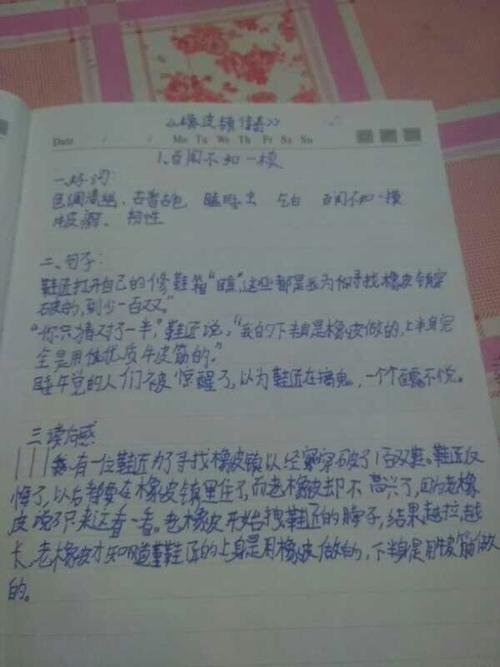 《橡皮镇怪》
Date / / Mo Tu We Th Fr Sa Su
1、百闻不如一模
一、好词:
色调 古香古色 瞌睡虫 乞白 百闻不如一模
牛皮筋 韧性
二、句子:
鞋匠打开自己的修鞋箱“瞧,这些都是我为你寻找橡皮镇穿
破的,到少一百双。”
“你只猜对了一半,”鞋匠说,“我的下半身是橡皮做的,上半身完
全是用优质牛皮筋的。”
睡午觉的人们被惊醒了,以为鞋匠在搞鬼,一个个面露不悦。
三、读后感
有一位鞋匠为了寻找橡皮镇以经穿破了1百双鞋。鞋匠反
悔了,以后都要在橡皮镇里住了,而老橡皮却不高兴了,因为老橡
皮说了只来这看一看。老橡皮开始拽鞋匠的脖子,结果越拉越
长,老橡皮才知道鞋匠的上身是用橡皮做的,下半身是用牛皮筋做
的。